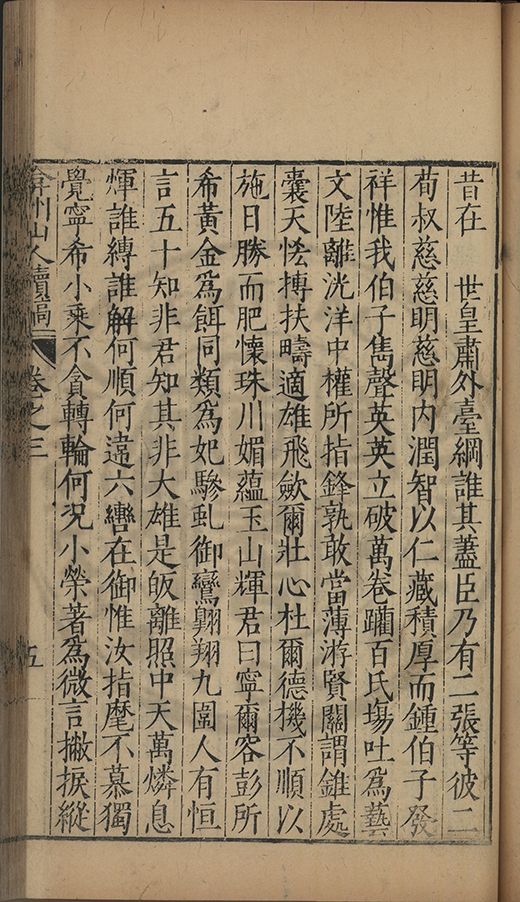 昔在　世皇肅外臺綱誰其藎臣乃有二張等彼二
荀叔慈慈明慈明內潤智以仁藏積厚而鍾伯子發
祥惟我伯子雋聲英英立破萬卷躪百氏塲吐爲藝
文陸離洸洋中權所指鋒孰敢當薄游賢關謂錐處
囊天恡摶扶疇適雄飛歛爾壯心杜爾德機不順以
施日勝而肥懷珠川媚蘊玉山輝君曰寧爾容彭所
希黃金爲餌同類爲妃驂虬御鸞翺翔九圍人有恒
言五十知非君知其非大雄是皈離照中天萬燐息
煇誰縛誰解何順何違六轡在御惟汝指麾不慕獨
覺寧希小乘不貪轉輪何況小榮著爲微言撇捩縱
弇州山人續稿　卷之三　五